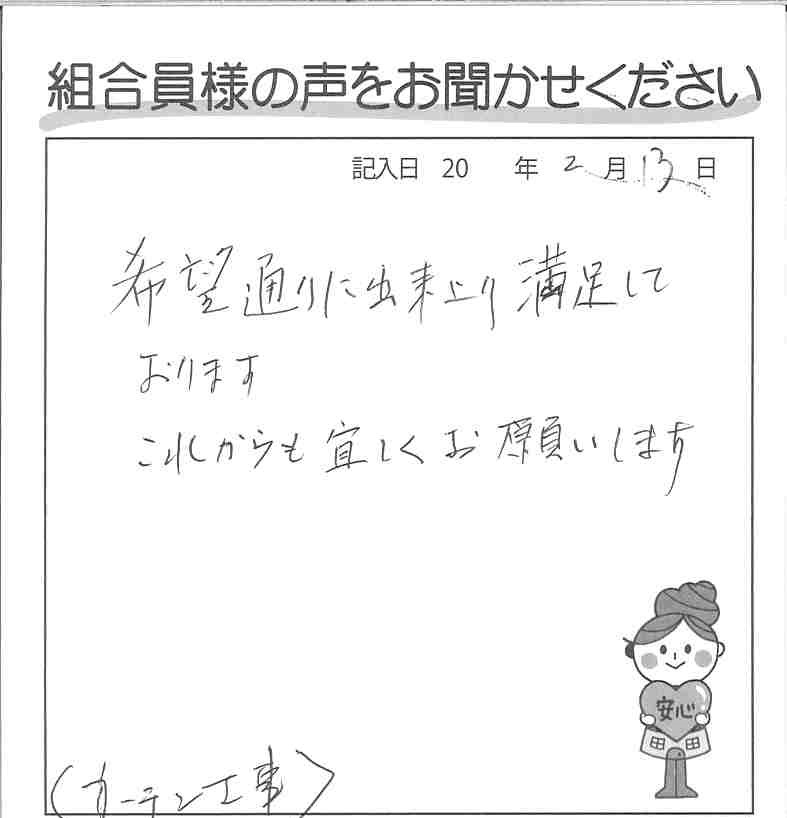 組合員様の声をお聞かせください
記入日 20 年 2 月 13 日
希望通りに出来上り満足して
おります
これからも宜しくお願いします
安心
(カーテン工事)